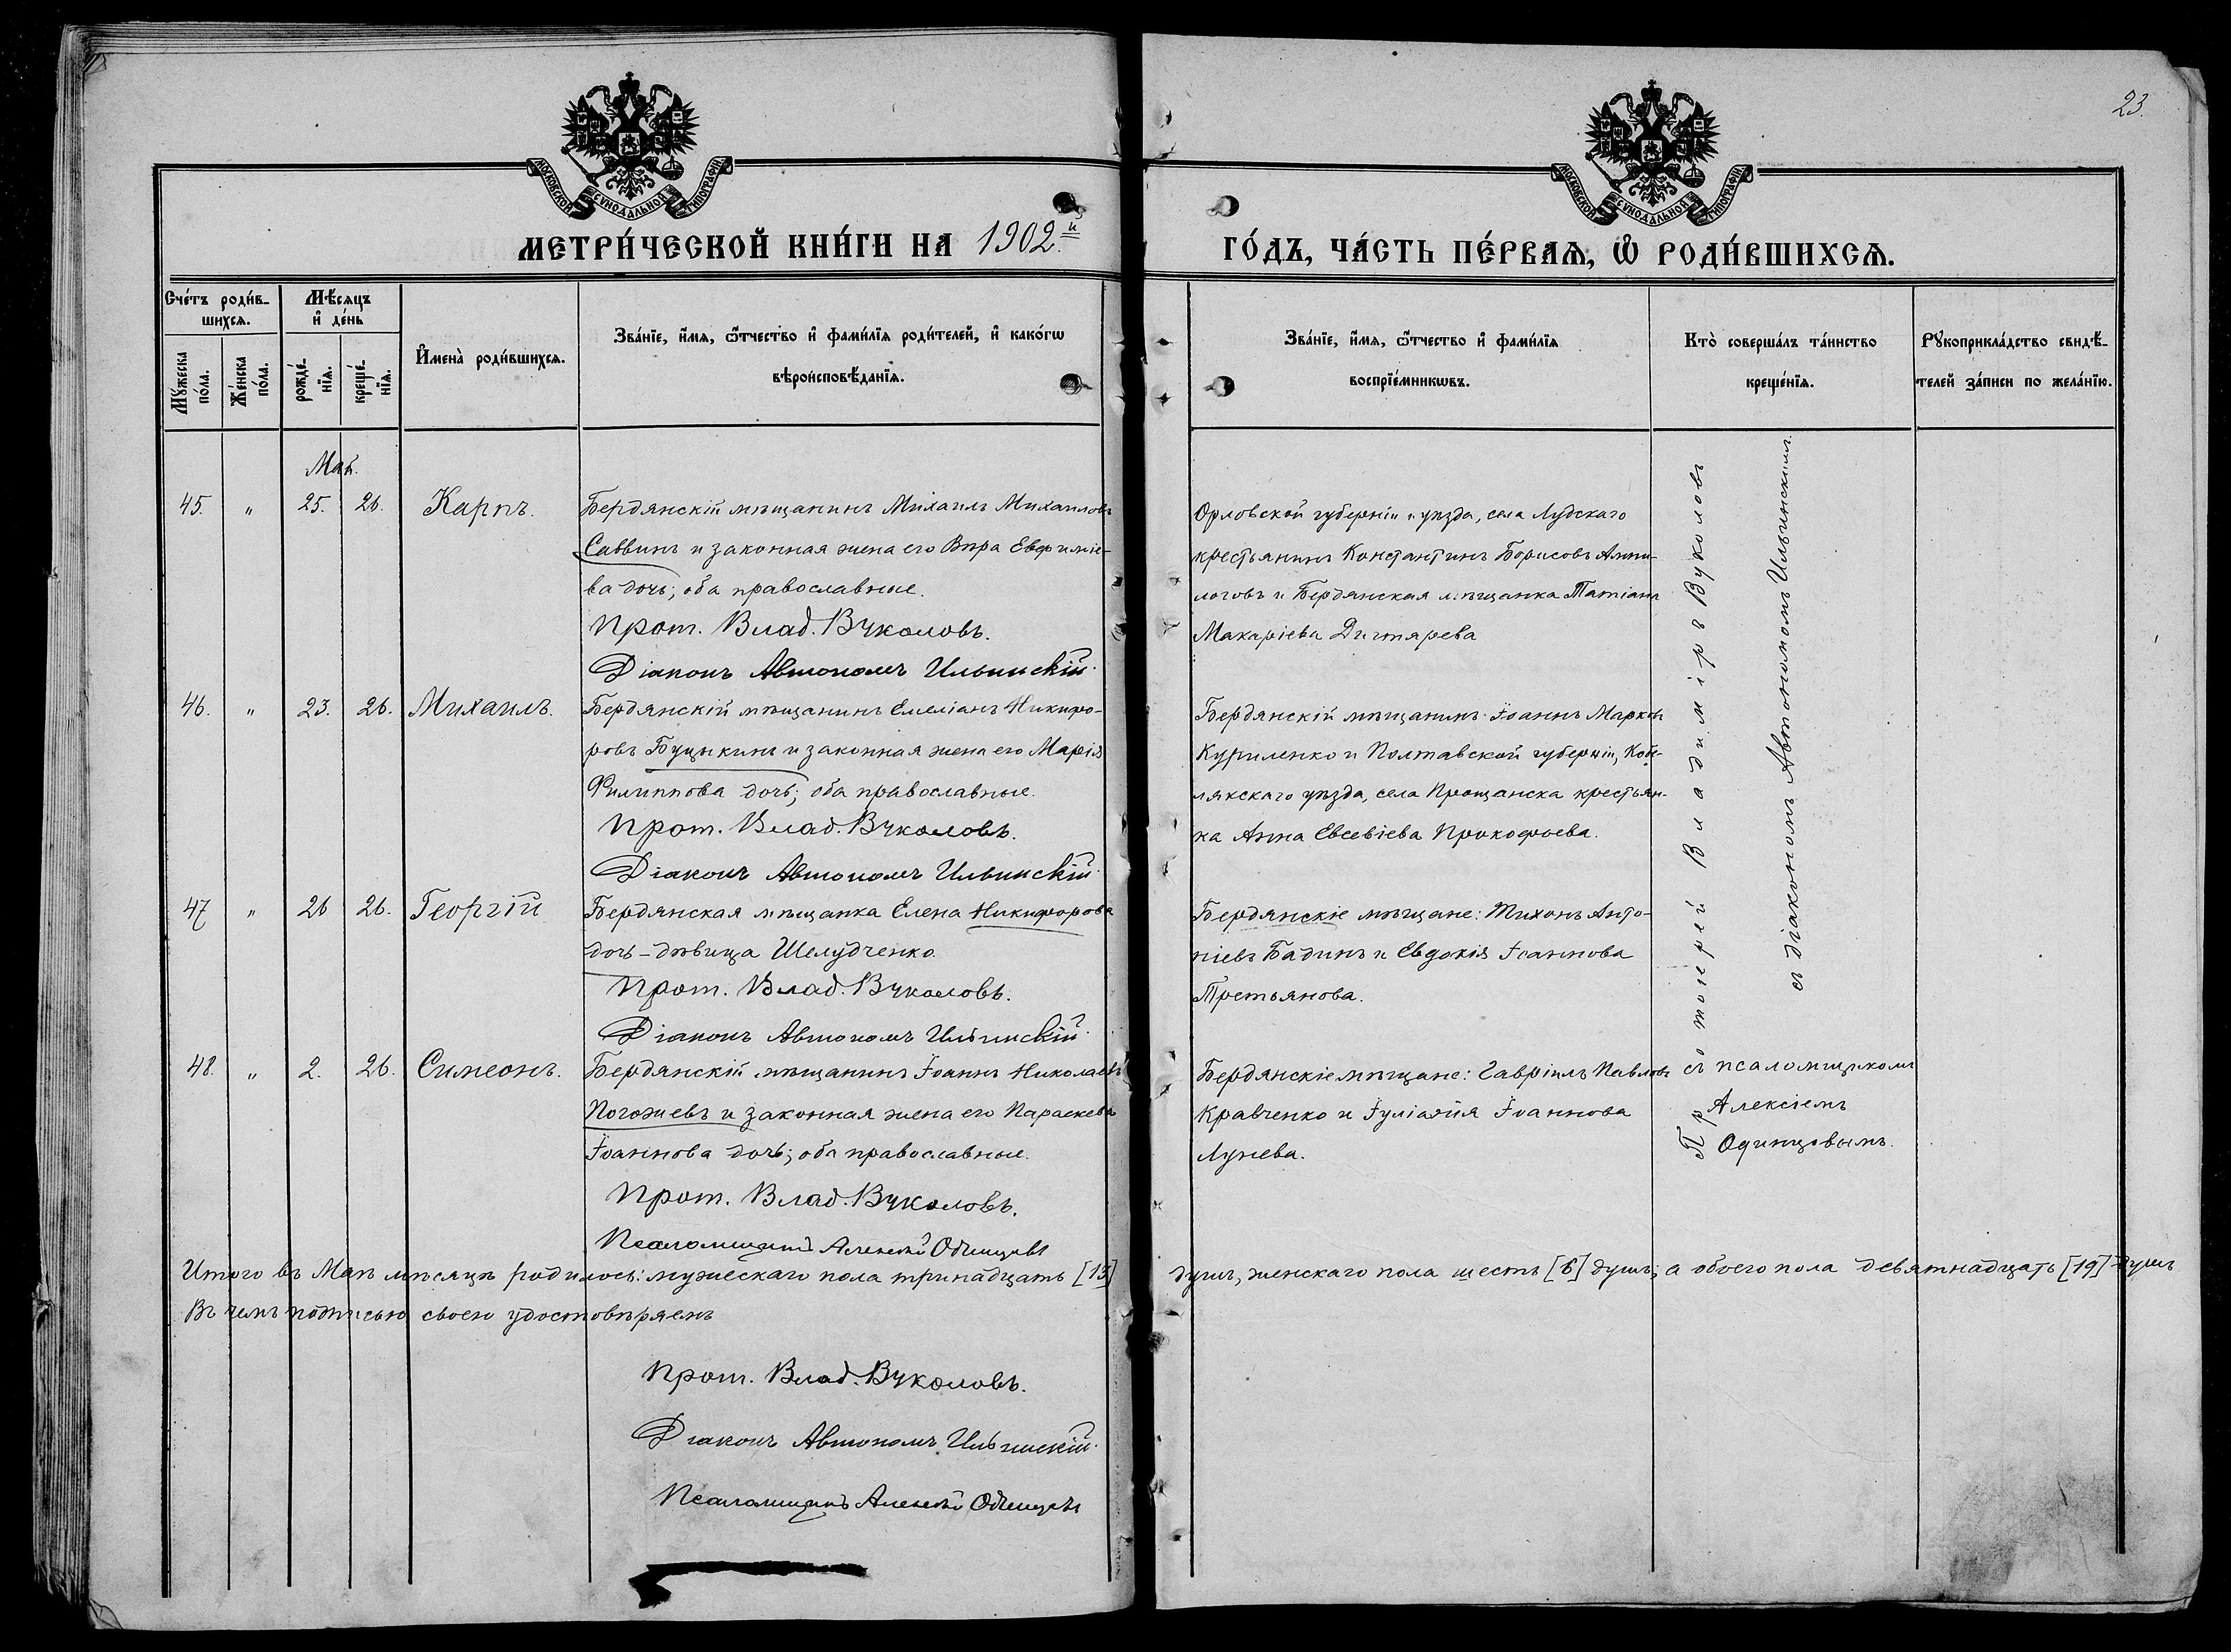 23.
МОСКОВСКОЙ СѴНОДАЛЬНОЙ ТИПОГРАФІИ
МОСКОВСКОЙ СѴНОДАЛЬНОЙ ТИПОГРАФІИ
МЕТРИ́ЧЕСКОЙ КНИ́ГИ НА 1902й
ГО́ДЪ, ЧА́СТЬ ПЕ́РВАѦ, Ѡ҆ РОДИ́ВШИХСѦ.
Сче́тъ роди́в-
шихсѧ.
Мꙋжеска по́ла.
Же́нска по́ла.
Мѣ́сяцъ
и҆ де́нь
рожде́-
нїѧ.
креще́-
нїѧ.
И҆мена̀ роди́вшихсѧ.
Зва́нїе, и҆́мѧ, ѻ҆́тчество и҆ фами́лїѧ роди́телей, и҆ како́гѡ
вѣроисповѣ́данїѧ.
Зва́нїе, и҆́мѧ, ѻ҆́тчество и҆ фами́лїѧ
воспрїе́мникѡвъ.
Кто̀ соверша́лъ та́инство
креще́нїѧ.
Рꙋкоприкла́дство свидѣ́-
телей за́писи по жела́нїю.
Май.
45. " 25. 26. Карпъ.
Бердянскій мѣщанинъ Михаилъ Михаиловъ
Саввинъ и законная жена его Вѣра Евфиміе-
ва дочь; оба православные.
Прот. Влад. Вуколовъ.
Діаконъ Автономъ Ильинскій.
Орловской губерніи и уѣзда, села Лудскаго
крестьянинъ Константинъ Борисовъ Ампи-
логовъ и Бердянская мѣщанка Татіана
Макаріева Дигтярева
46. " 23. 26. Михаилъ.
Бердянскій мѣщанинъ Емеліанъ Никифо-
ровъ Буцыкинъ и законная жена его Марія
Филиппова дочь; оба православные.
Прот. Влад. Вуколовъ.
Діаконъ Автономъ Ильинскій.
Бердянскій мѣщанинъ Іоаннъ Марковъ
Куриленко и Полтавской губерніи, Кобе-
лякскаго уѣзда, села Прощанска крестьян-
ка Анна Евсевіева Прокофьева.
47 " 26 26. Георгій
Бердянская мѣщанка Елена Никифорова
дочь - дѣвица Шелудченко.
Прот. Влад. Вуколовъ.
Діаконъ Автономъ Ильинскій.
Бердянскіе мѣщане: Тихонъ Анто-
ніевъ Бадинъ и Евдокія Іоаннова
Третьянова.
48. " 2. 26. Симеонъ.
Бердянскій мѣщанинъ Іоаннъ Николаевъ
Погожевъ и законная жена его Параскева
Іоаннова дочь; оба православные.
Прот. Влад. Вуколовъ.
Псаломщикъ Алексѣй Одинцовъ
Бердянскіе мѣщане: Гавріилъ Павловъ
Кравченко и Іуліанія Іоаннова
Лунева.
Протоіерей Владиміръ Вуколовъ
съ діакономъ Автономомъ Ильинскимъ.
съ псаломщикомъ
Алексіемъ
Одинцовымъ.
Итого въ Маѣ мѣсяцѣ родилось: мужескаго пола тринадцать [13] душъ, женскаго пола шесть [6] душъ; а обоего пола девятнадцать [19] душъ
Въ чемъ подписью своею удостовѣряемъ
Прот. Влад. Вуколовъ.
Діаконъ Автономъ Ильинскій.
Псаломщикъ Алексѣй Одинцовъ